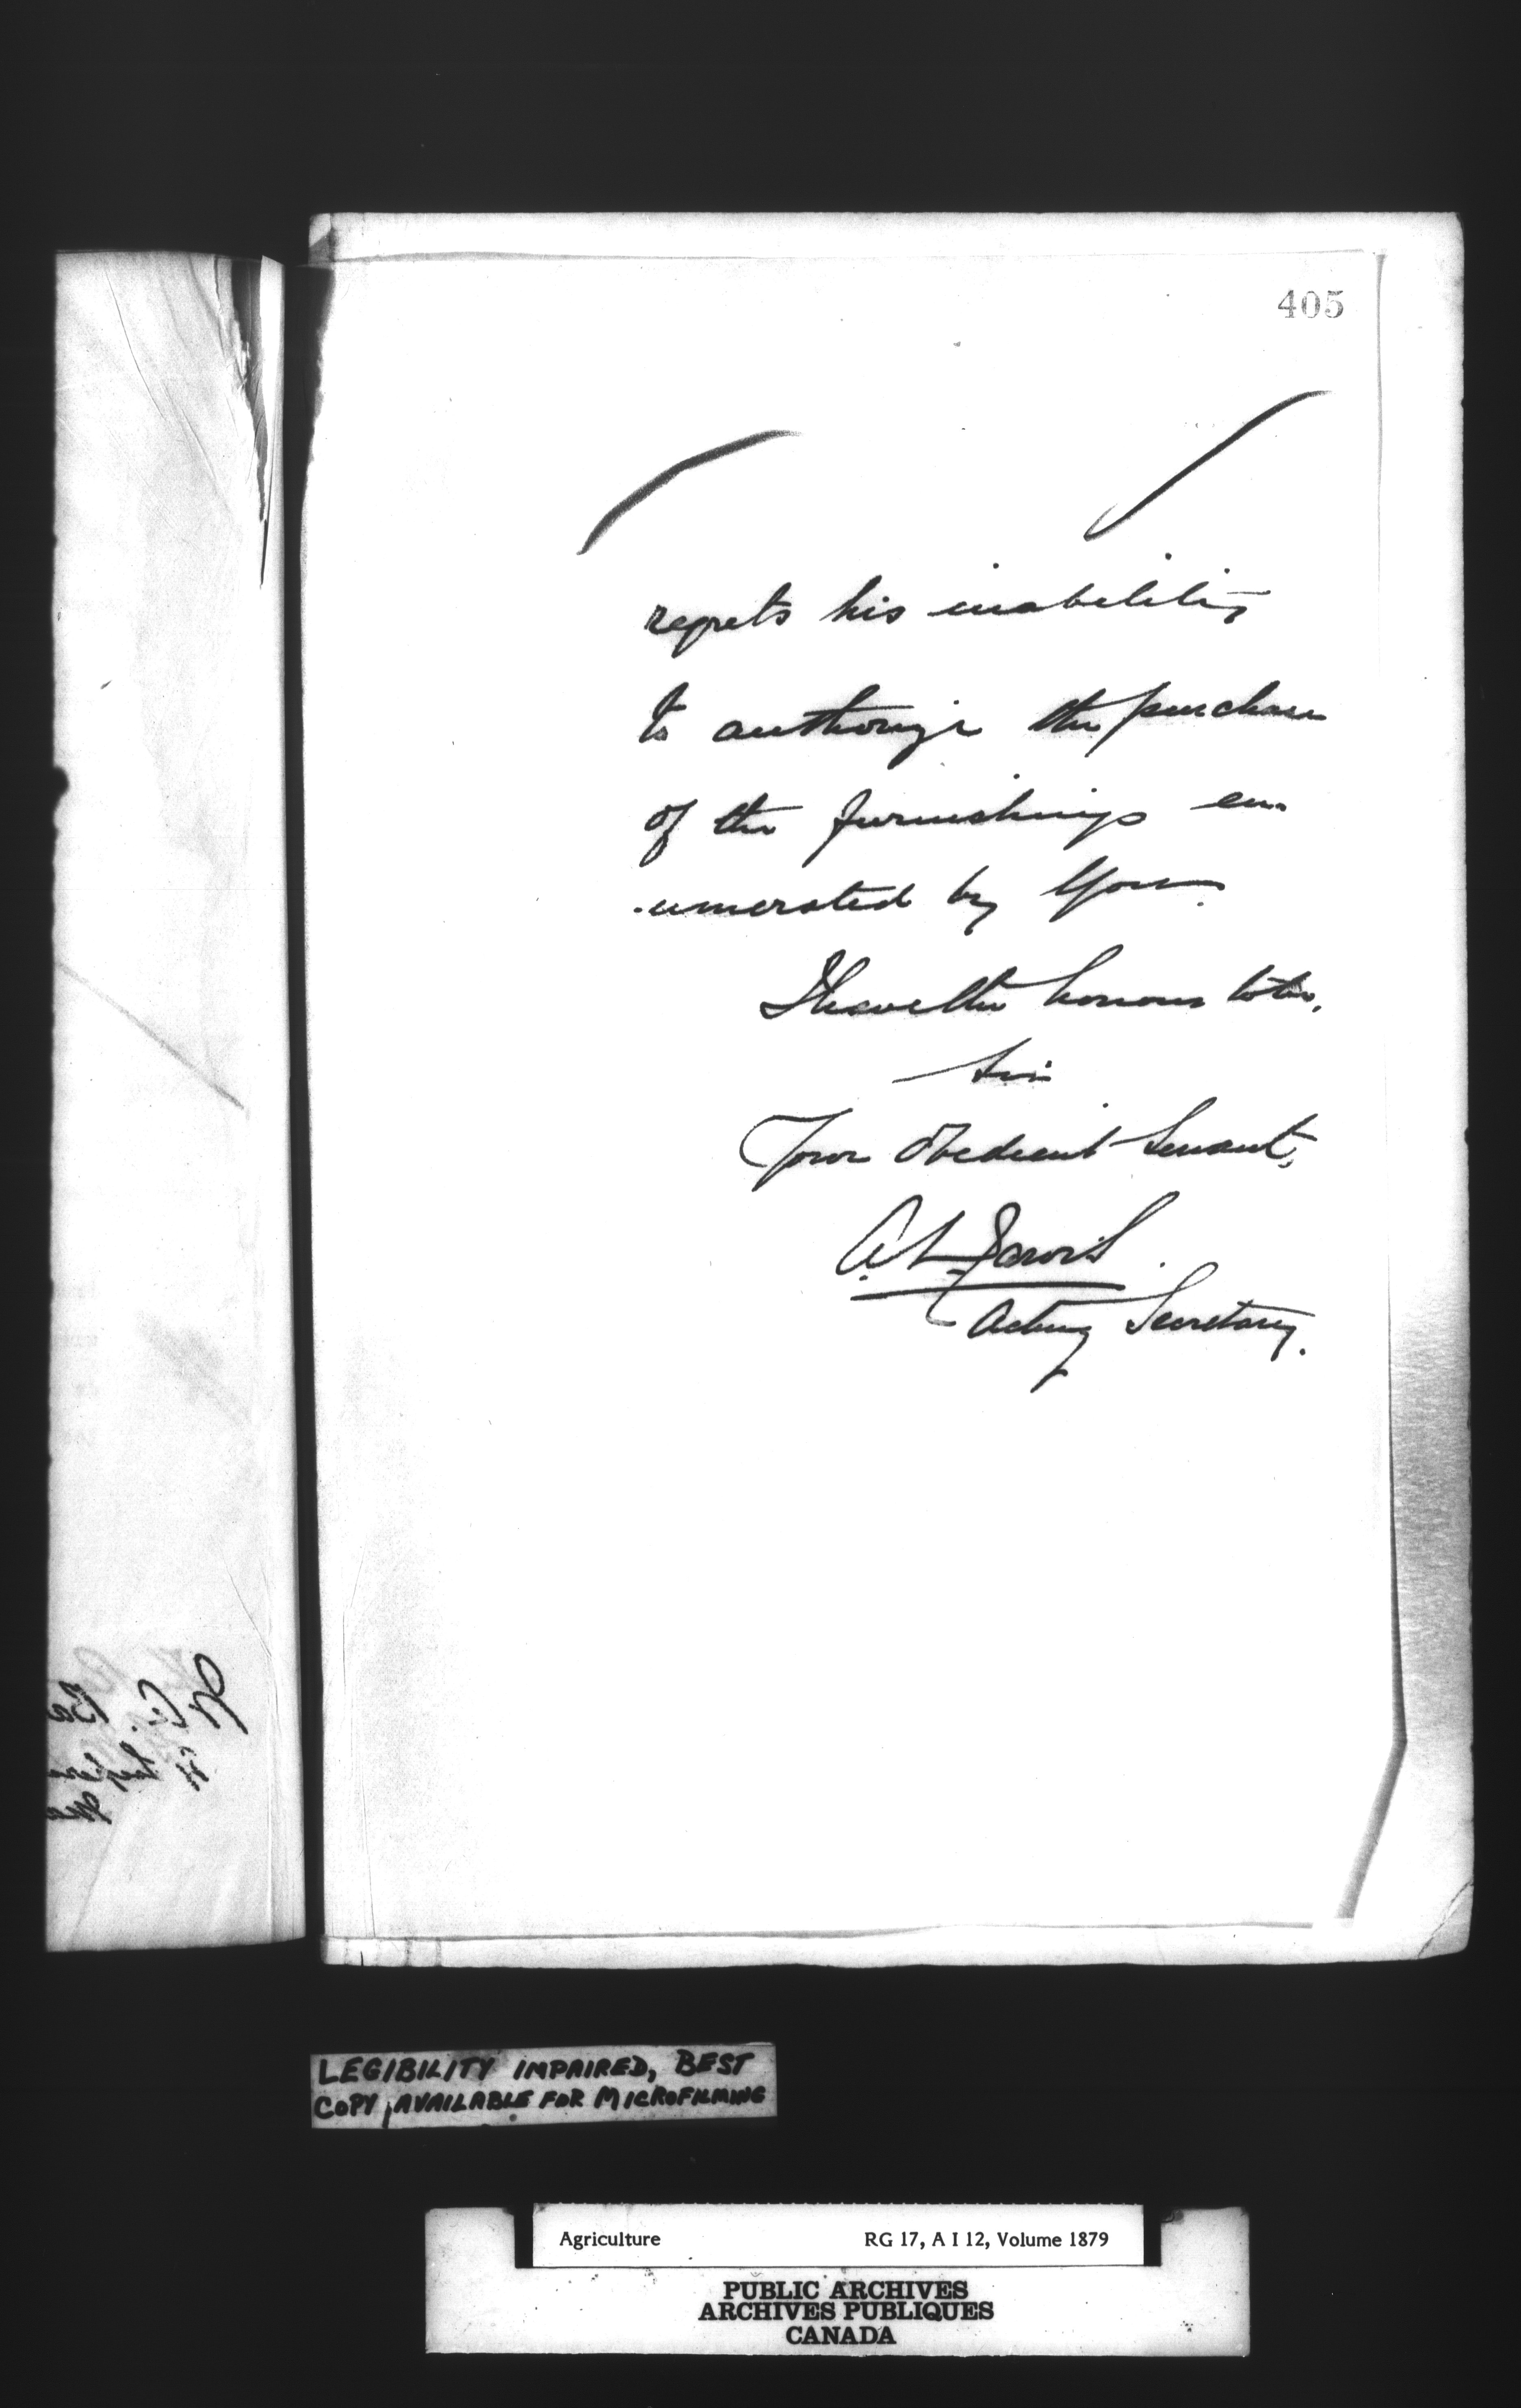 405
regrets his inability
to authorize the purchase
of the furnishings en-
-umerated by you.
I have the honour to be,
Sir
Your obedient Servant,
A. L. Jarvis
Acting Secretary.
LEGIBILITY IMPAIRED, BEST
COPY AVAILABLE FOR MICROFILMING
Agriculture RG 17, A I 12, Volume 1879
PUBLIC ARCHIVES
ARCHIVES PUBLIQUES
CANADA